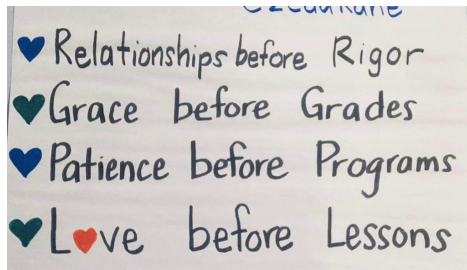 Relationships before Rigor
Grace before Grades
Patience before Programs
Love before Lessons